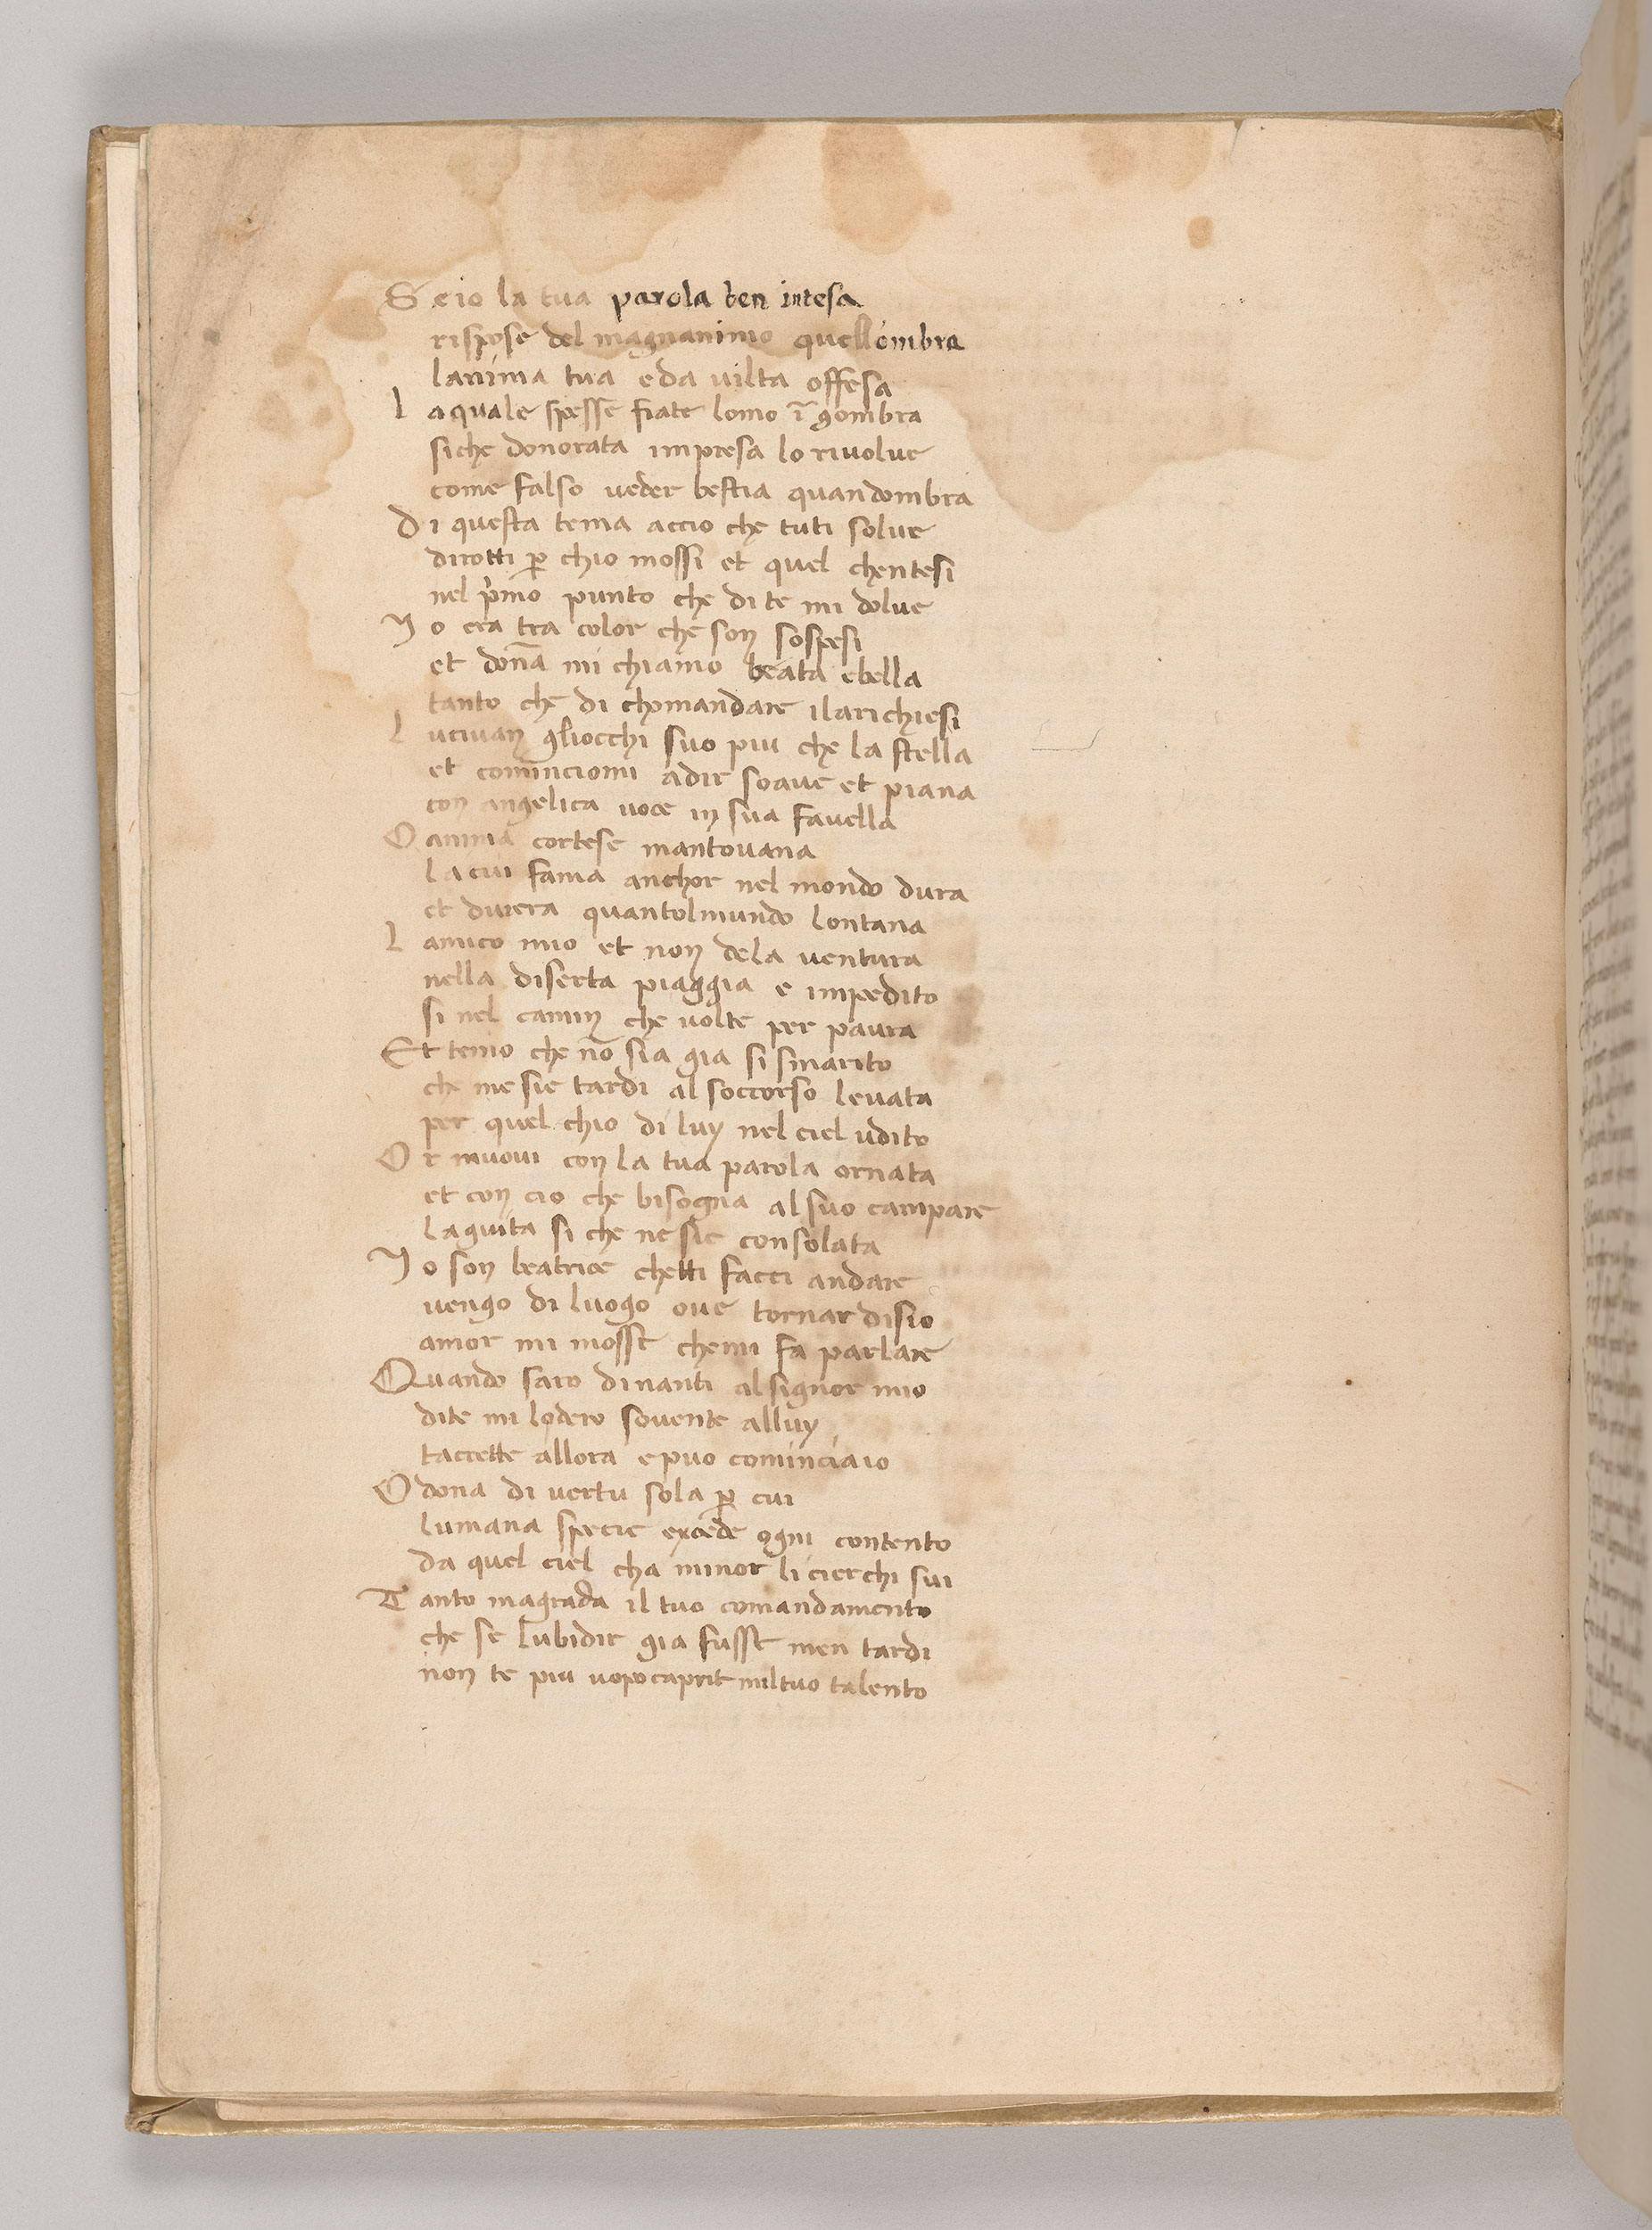 S eio la tua parola ben intesa
rispose del magnanimo quellombra
lanima tua e da uilta offesa
L aquale spesse fiate lomo ĩ gombra
siche donorata impresa lo riuolue
come falso ueder bestia quandombra
D i questa tema accio che tuti solue
dirotti ꝑ chio mossi et quel chentesi
nel pͥmo punto che di te mi dolue
Y o era tra color che son sospesi
et donā mi chiamo beata ebella
tanto che di chomandare ilarichiesi
L uciuan gliocchi suo piu che la stella
et cominciomi adir soaue et piana
con angelica uoce in sua fauella
O anima cortese mantouana
la cui fama anchor nel mondo dura
et durera quantolmundo lontana
L amico mio et non dela uentura
nella diserta piaggia e impedito
si nel camin che uolte per paura
Et temo che nō sia gia si smarito
che me sie tardi al soccorso leuata
per quel chio di luy nel ciel udito
O r muoui con la tua parola ornata
et con cio che bisogna al suo campare
laguita si che ne sie consolata
Y o son beatrice chetti facci andare
uengo di luogo oue tornar disio
amor mi mosse chemi fa parlare
Quando saro dinanti alsignor mio
dite mi lodero souente alluy
taccette allora e puo cominciaio
O dona di uertu sola ꝑ cui
lumana specie excede ogni contento
da quel ciel cha minor li cierchi sui
T anto magrada il tuo comandamento
che se lubidir gia fusse men tardi
non te piu uopo caprit miltuo talento